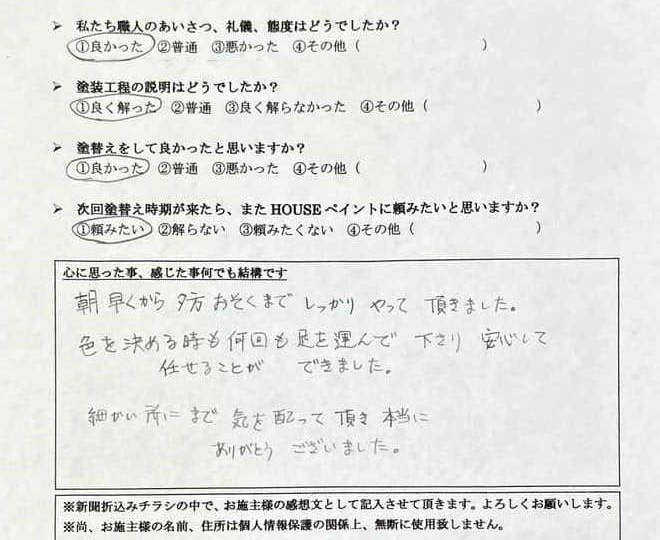 ➢ 私たち職人のあいさつ、礼儀、態度はどうでしたか？
①良かった ②普通 ③悪かった ④その他（ ）
➢ 塗装工程の説明はどうでしたか？
①良く解った ②普通 ③良く解らなかった ④その他（ ）
➢ 塗替えをして良かったと思いますか？
①良かった ②普通 ③悪かった ④その他（ ）
➢ 次回塗替え時期が来たら、また HOUSE ペイントに頼みたいと思いますか？
①頼みたい ②解らない ③頼みたくない ④その他（ ）
心に思った事、感じた事何でも結構です
朝早くから 夕方おそくまで しっかり やって 頂きました。
色を決める時も何回も足を運んで 下さり 安心して
任せることが できました。
細かい所にまで 気を配って 頂き 本当に
ありがとう ございました。
※新聞折込みチラシの中で、お施主様の感想文として記入させて頂きます。よろしくお願いします。
※尚、お施主様の名前、住所は個人情報保護の関係上、無断に使用致しません。